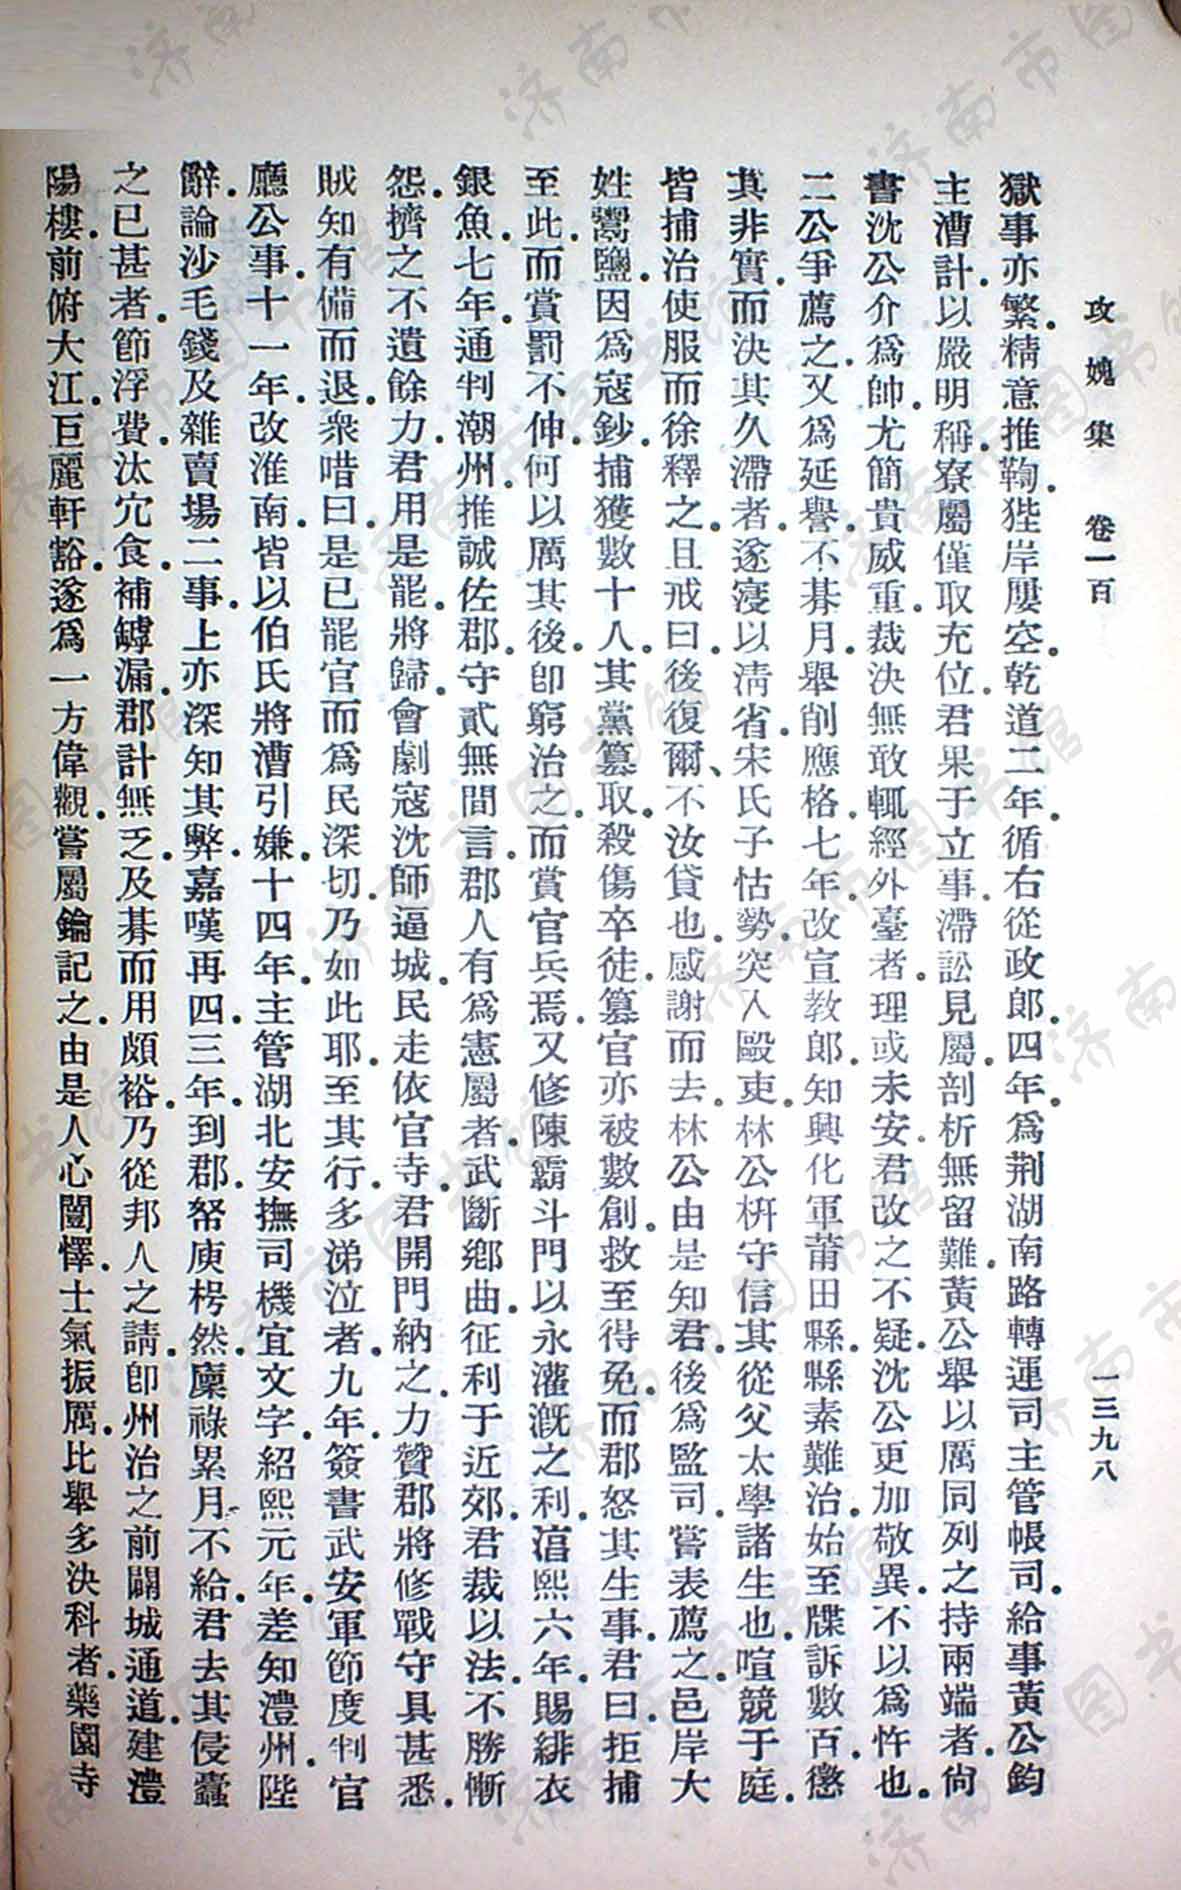 攻媿集　卷一百　一三九八
獄事亦繁.精意推鞫.狴岸屢空.乾道二年.循右從政郎.四年.爲荆湖南路轉運司主管帳司.給事黃公鈞
主漕計.以嚴明稱.寮屬僅取充位.君果于立事.滯訟見屬.剖析無留難.黃公舉以厲同列之持兩端者.尙
書沈公介爲帥.尤簡貴威重.裁決無敢輒經外臺者.理或未安.君改之不疑.沈公更加敬異.不以爲忤也.
二公爭薦之.又爲延譽.不朞月.舉削應格.七年.改宣教郎.知興化軍莆田縣.縣素難治.始至牒訴數百.懲
其非實.而決其久滯者.遂寖以清省.宋氏子怙勢.突入毆吏.林公枅守信.其從父太學諸生也.喧競于庭.
皆捕治使服.而徐釋之.且戒曰.後復爾、不汝貸也.感謝而去.林公由是知君.後爲監司.嘗表薦之.邑岸大
姓鬻鹽.因爲寇鈔.捕獲數十人.其黨篡取.殺傷卒徒.篡官亦被數創.救至得免.而郡怒其生事.君曰.拒捕
至此.而賞罰不伸.何以厲其後.卽窮治之.而賞官兵焉.又修陳霸斗門.以永灌漑之利.淳熙六年.賜緋衣
銀魚.七年.通判潮州.推誠佐郡.守貳無間言.郡人有爲憲屬者.武斷鄕曲.征利于近郊.君裁以法.不勝慚
怨.擠之不遺餘力.君用是罷.將歸.會劇寇沈師逼城.民走依官寺.君開門納之.力贊郡將修戰守具甚悉.
賊知有備而退.衆唶曰.是已罷官而爲民深切.乃如此耶.至其行.多涕泣者.九年.簽書武安軍節度判官
廳公事.十一年.改淮南.皆以伯氏將漕引嫌.十四年.主管湖北安撫司機宜文字.紹熙元年.差知澧州.陛
辭.論沙毛錢及雜賣場二事.上亦深知其弊.嘉嘆再四.三年.到郡.帑庾枵然.廩祿累月不給.君去其侵蠹
之已甚者.節浮費.汰冗食.補罅漏.郡計無乏.及朞而用頗裕.乃從邦人之請.卽州治之前闢城通道.建澧
陽樓.前俯大江.巨麗軒豁.遂爲一方偉觀.嘗屬鑰記之.由是人心闓懌.士氣振厲.比舉多決科者.藥園寺